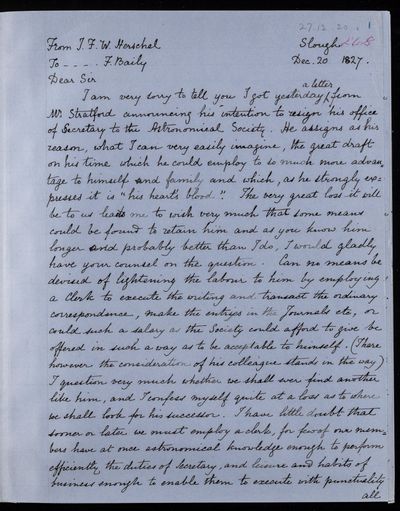 27.12.20. 1
From J. F. W. Herschel
Slough
To - - - . F. Baily
Dec. 20 1827.
Dear Sir
a letter
I am very sorry to tell you I got yesterday from
Mr. Stratford announcing his intention to resign his office
of Secretary to the Astronomical Society. He assigns as his
reason, what I can very easily imagine, the great draft
on his time which he could employ to so much more advan
tage to himself and family and which, as he strongly ex=
presses it is "his heart's blood". The very great loss it will
be to us leads me to wish very much that some means
could be found to retain him and as you know him
longer and probably better than I do, I would gladly
have your counsel on the question. Can no means be
devised of lightening the labour to him by employing
a Clerk to execute the writing and transact the ordinary
correspondence, make the entries in the Journals etc, or
could such a salary as the Society could afford to give be
offered in such a way as to be acceptable to himself. (There
however the consideration of his colleague stands in the way)
I question very much whether we shall ever find another
like him, and I confess myself quite at a loss as to where
we shall look for his successor. I have little doubt that
sooner or later we must employ a clerk, for few of our mem=
bers have at once astronomical knowledge enough to perform
efficiently the duties of Secretary, and leisure and habits of
business enough to enable them to execute with punctuality
all